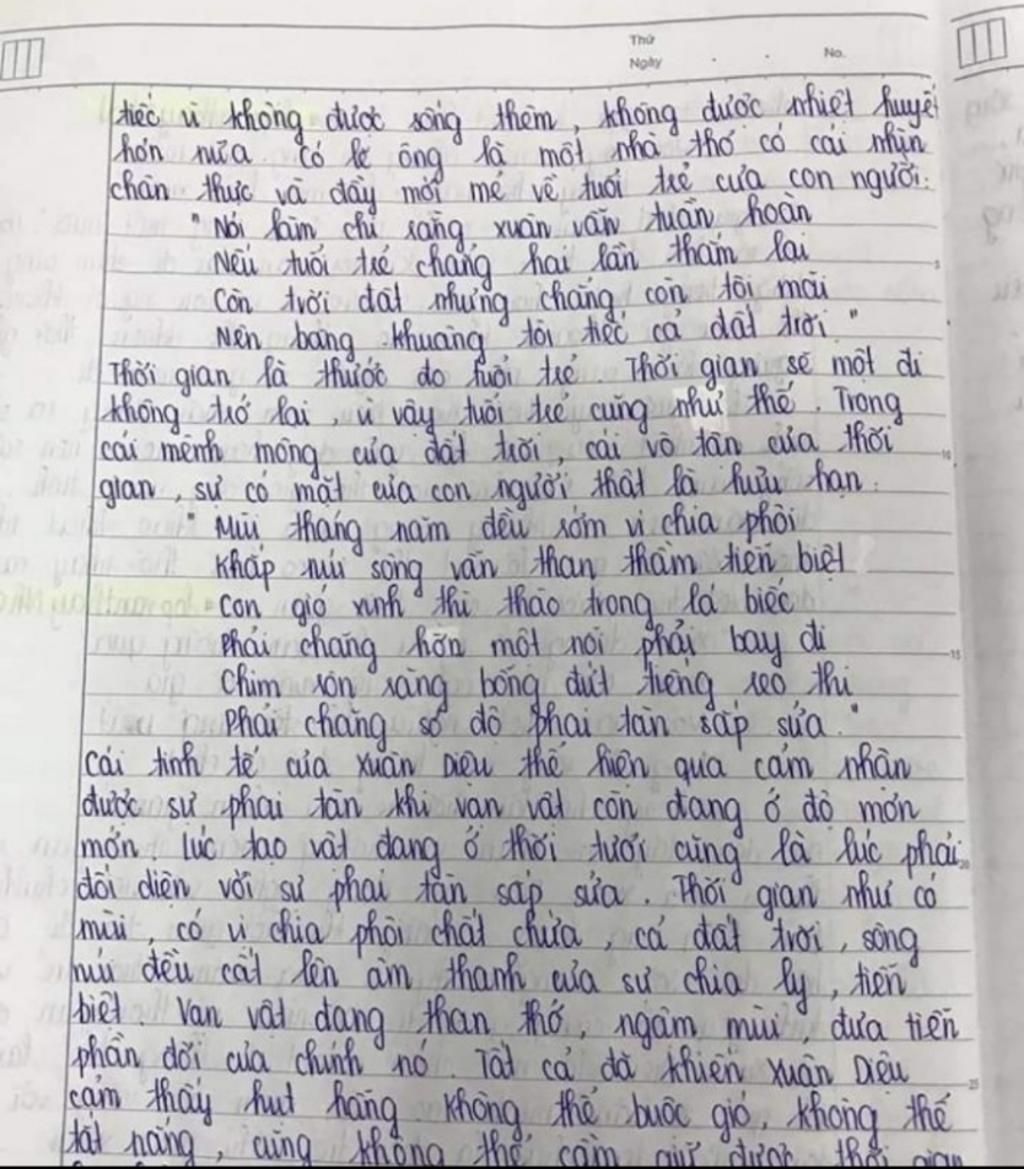 Thứ
Ngày . . No.
tiếc vì không được sống thêm, không được nhiệt huyết
hơn nữa. Có lẽ ông là một nhà thơ có cái nhìn
chân thực và đầy mới mẻ về tuổi trẻ của con người:
"Nói làm chi rằng xuân vẫn tuần hoàn
Nếu tuổi trẻ chẳng hai lần thắm lại
Còn trời đất nhưng chẳng còn tôi mãi
Nên bâng khuâng tôi tiếc cả đất trời"
Thời gian là thước đo tuổi trẻ. Thời gian sẽ một đi
không trở lại, vì vậy tuổi trẻ cũng như thế. Trong
cái mênh mông của đất trời, cái vô tận của thời
gian, sự có mặt của con người thật là hữu hạn.
"Mùi tháng năm đều rớm vị chia phôi
Khắp núi sông vẫn than thầm tiễn biệt
Con gió xinh thì thào trong lá biếc
Phải chăng hờn một nỗi phải bay đi
Chim rộn ràng bỗng đứt tiếng reo thi
Phải chăng sợ độ phai tàn sắp sửa."
Cái tinh tế của Xuân Diệu thể hiện qua cảm nhận
được sự phai tàn khi vạn vật còn đang ở độ mơn
mởn. Lúc tạo vật đang ở thời tươi cũng là lúc phải
đối diện với sự phai tàn sắp sửa. Thời gian như có
mùi, có vị chia phôi chất chứa, cả đất trời, sông
núi đều cất lên âm thanh của sự chia ly, tiễn
biệt. Vạn vật đang than thở, ngậm mùi, đưa tiễn
phần đời của chính nó. Tất cả đã khiến Xuân Diệu
cảm thấy hụt hẫng không thể buộc gió, không thể
tắt nắng, cũng không thể cầm giữ được thời gian